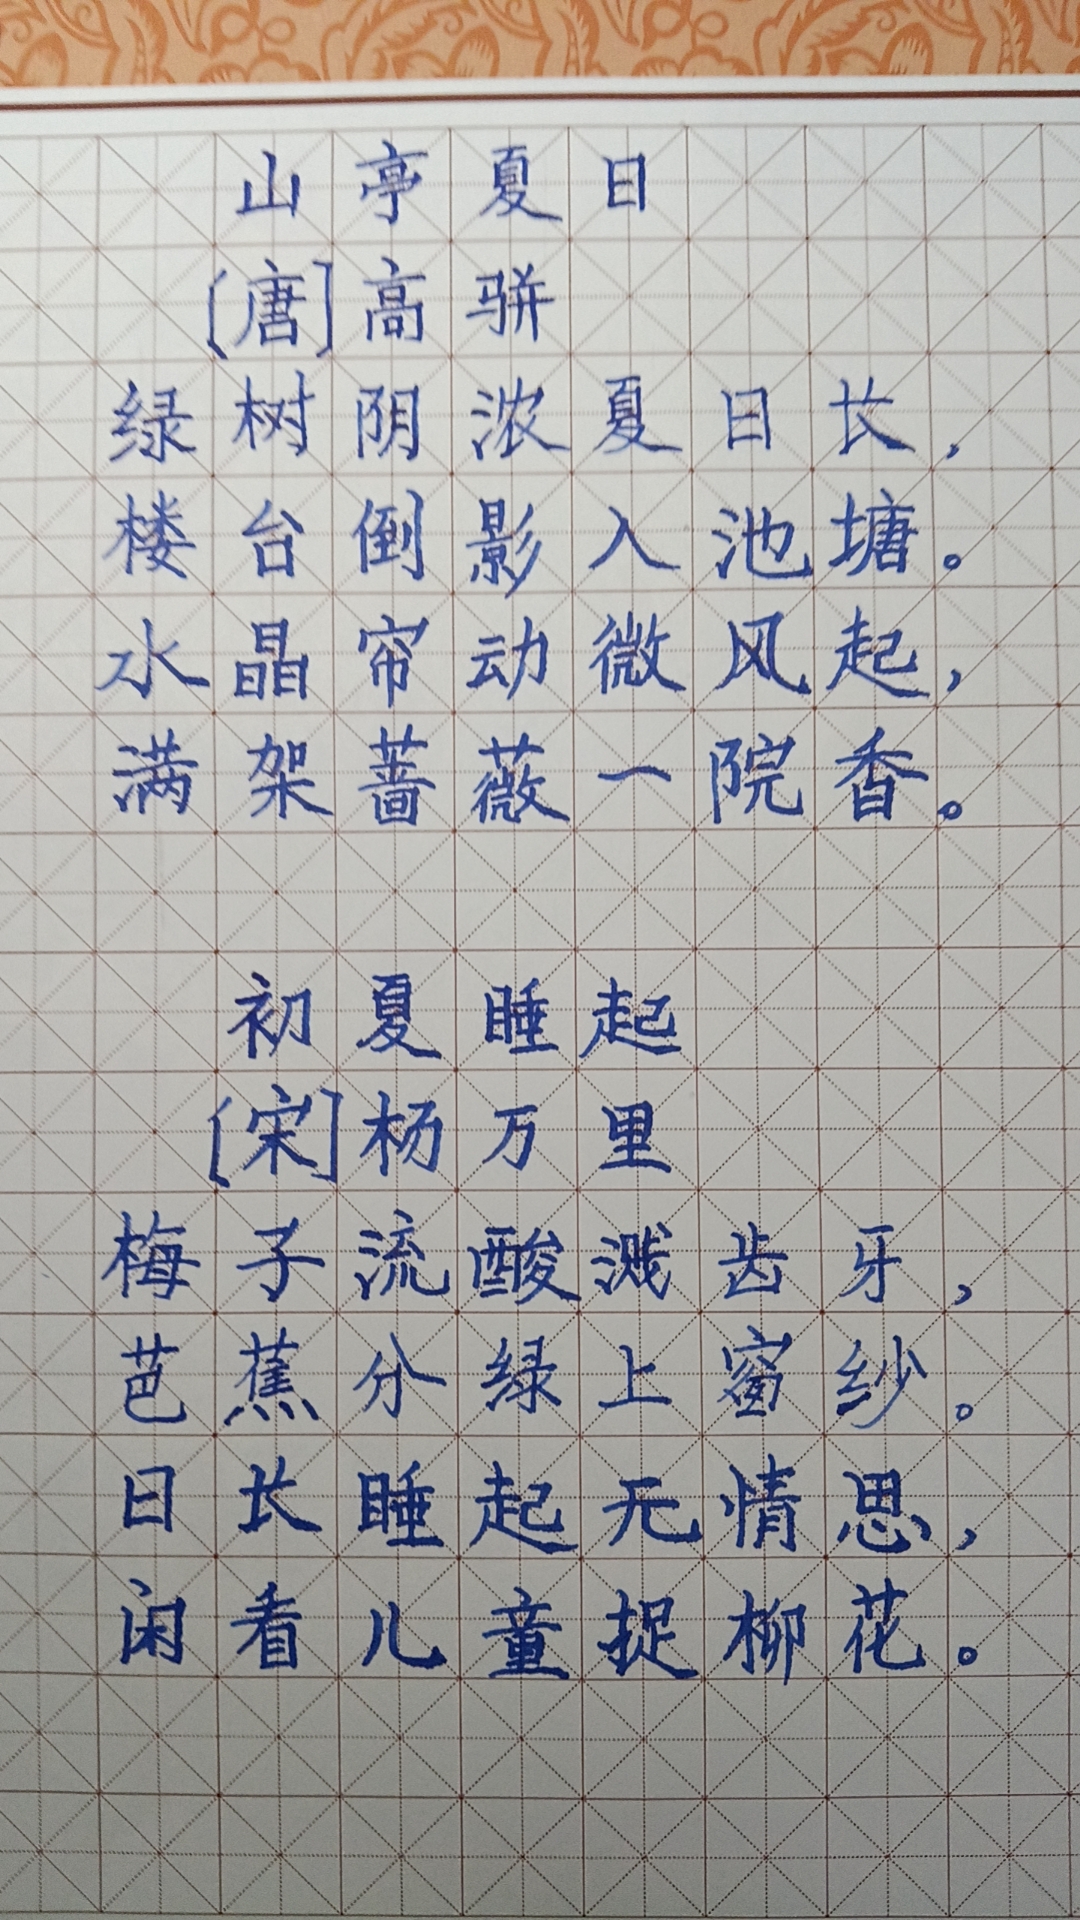 山亭夏日
[唐]高骈
绿树阴浓夏日长，
楼台倒影入池塘。
水晶帘动微风起，
满架蔷薇一院香。
初夏睡起
[宋]杨万里
梅子流酸溅齿牙，
芭蕉分绿上窗纱。
日长睡起无情思，
闲看儿童捉柳花。